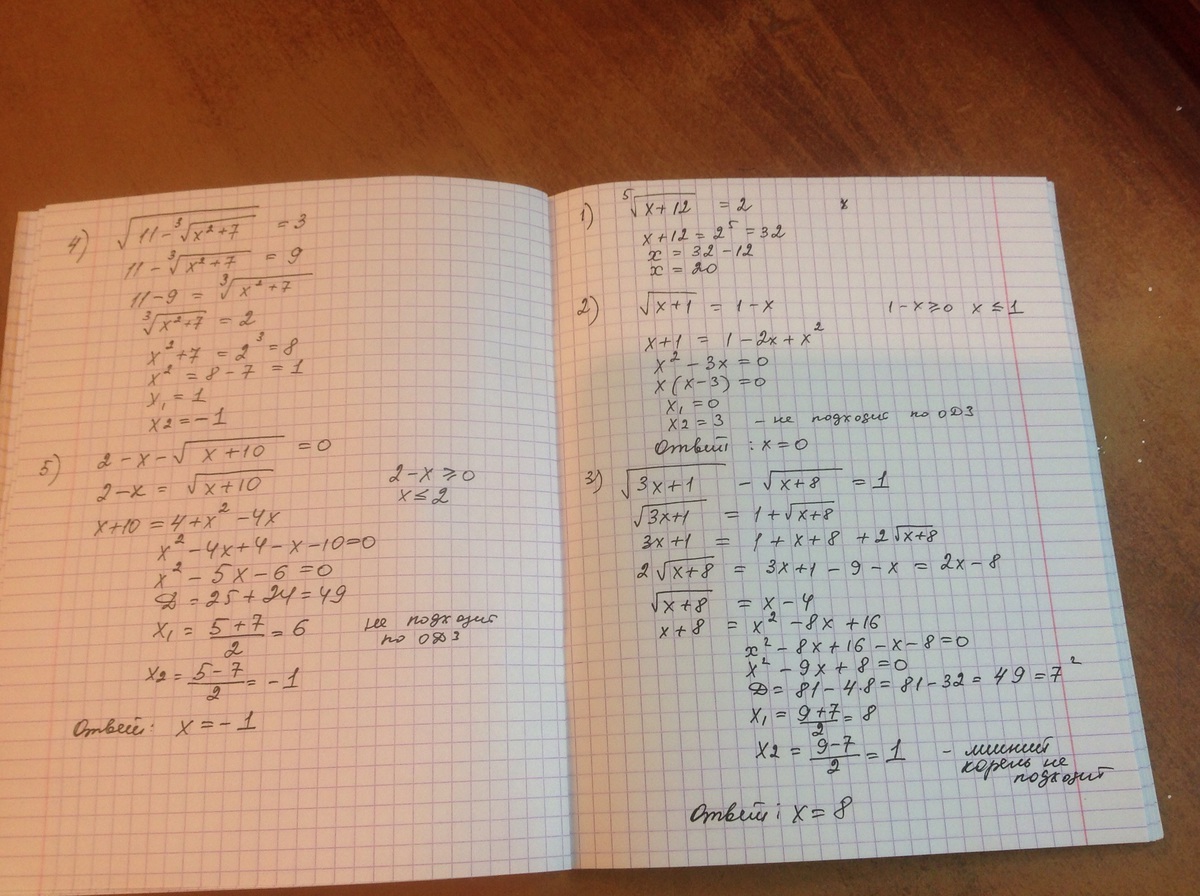 4) √(11-∛(x²+7)) = 3
11-∛(x²+7) = 9
11-9 = ∛(x²+7)
∛(x²+7) = 2
x²+7 = 2³ = 8
x² = 8-7 = 1
x₁ = 1
x2 = -1
5) 2-x-√(x+10) = 0
2-x = √(x+10) 2-x ≥ 0
x ≤ 2
x+10 = 4+x²-4x
x²-4x+4-x-10=0
x²-5x-6=0
D = 25+24=49
x₁ = (5+7)/2 = 6 не подходит
по ОДЗ
x2 = (5-7)/2 = -1
Ответ: x = -1
1) ⁵√(x+12) = 2 x
x+12 = 2⁵ = 32
x = 32-12
x = 20
2) √(x+1) = 1-x 1-x ≥ 0 x ≤ 1
x+1 = 1-2x+x²
x²-3x=0
x(x-3)=0
x₁=0
x2=3 - не подходит по ОДЗ
Ответ: x=0
3) √(3x+1) - √(x+8) = 1
√(3x+1) = 1+√(x+8)
3x+1 = 1+x+8+2√(x+8)
2√(x+8) = 3x+1-9-x = 2x-8
√(x+8) = x-4
x+8 = x²-8x+16
x²-8x+16-x-8=0
x²-9x+8=0
D = 81-4·8=81-32=49=7²
x₁ = (9+7)/2 = 8
x2 = (9-7)/2 = 1 - лишний
корень не
подходит
Ответ: x = 8